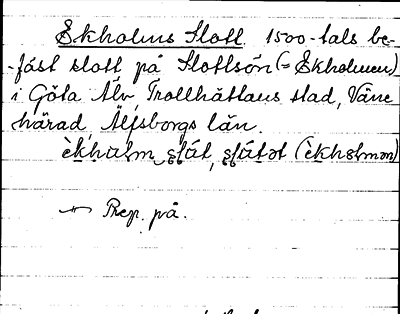 Ekholms Slott 1500-tals be-
-fäst slott på Slottsön (= Ekholmen)
i Göta Älv, Trollhättans stad, Väne
härad, Älfsborgs län.
èkhɯlm slåt, slåtət (èkhɯlmən)
Prep. på.